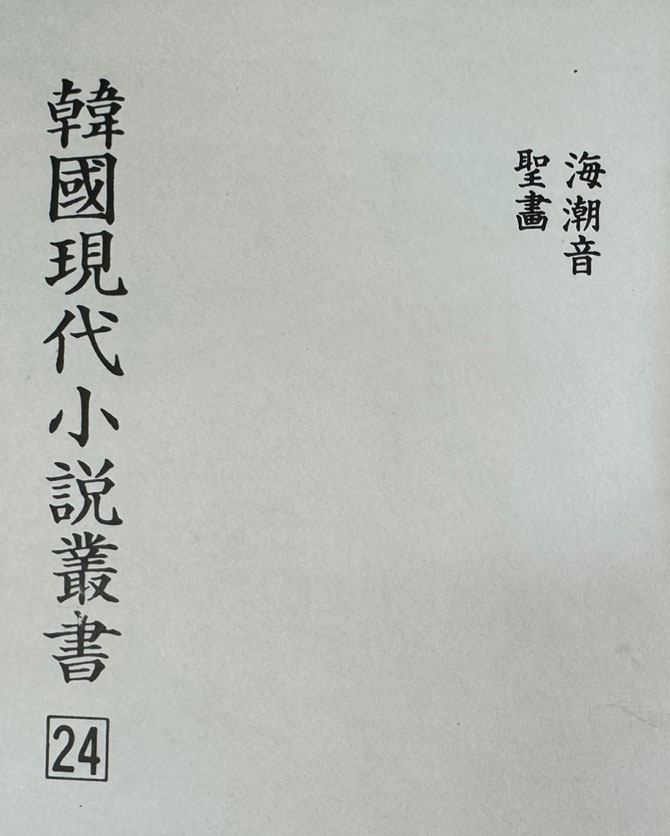 海潮音
聖畵
韓國現代小説叢書
24